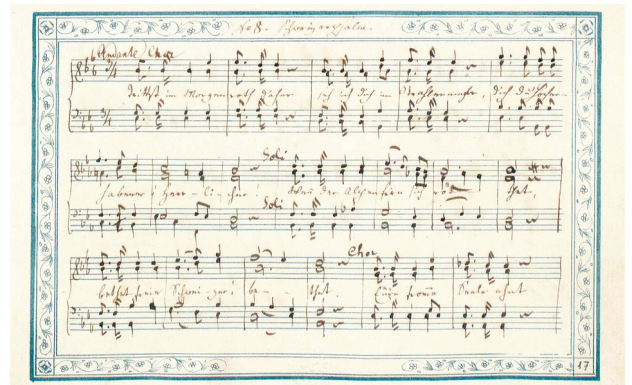 No 8. Schweizerpsalm.
Andante Chor
3/4
Trittst im Morgenroth daher, seh ich dich im Strahlenmeer, dich du Hocher-
3/4
Soli
habener! Herr-li-cher! Wenn der Alpenfirn sich rö- thet,
Soli
Chor
bethet freie Schweizer! be- thet. Eure fromme Seele ahnt
17